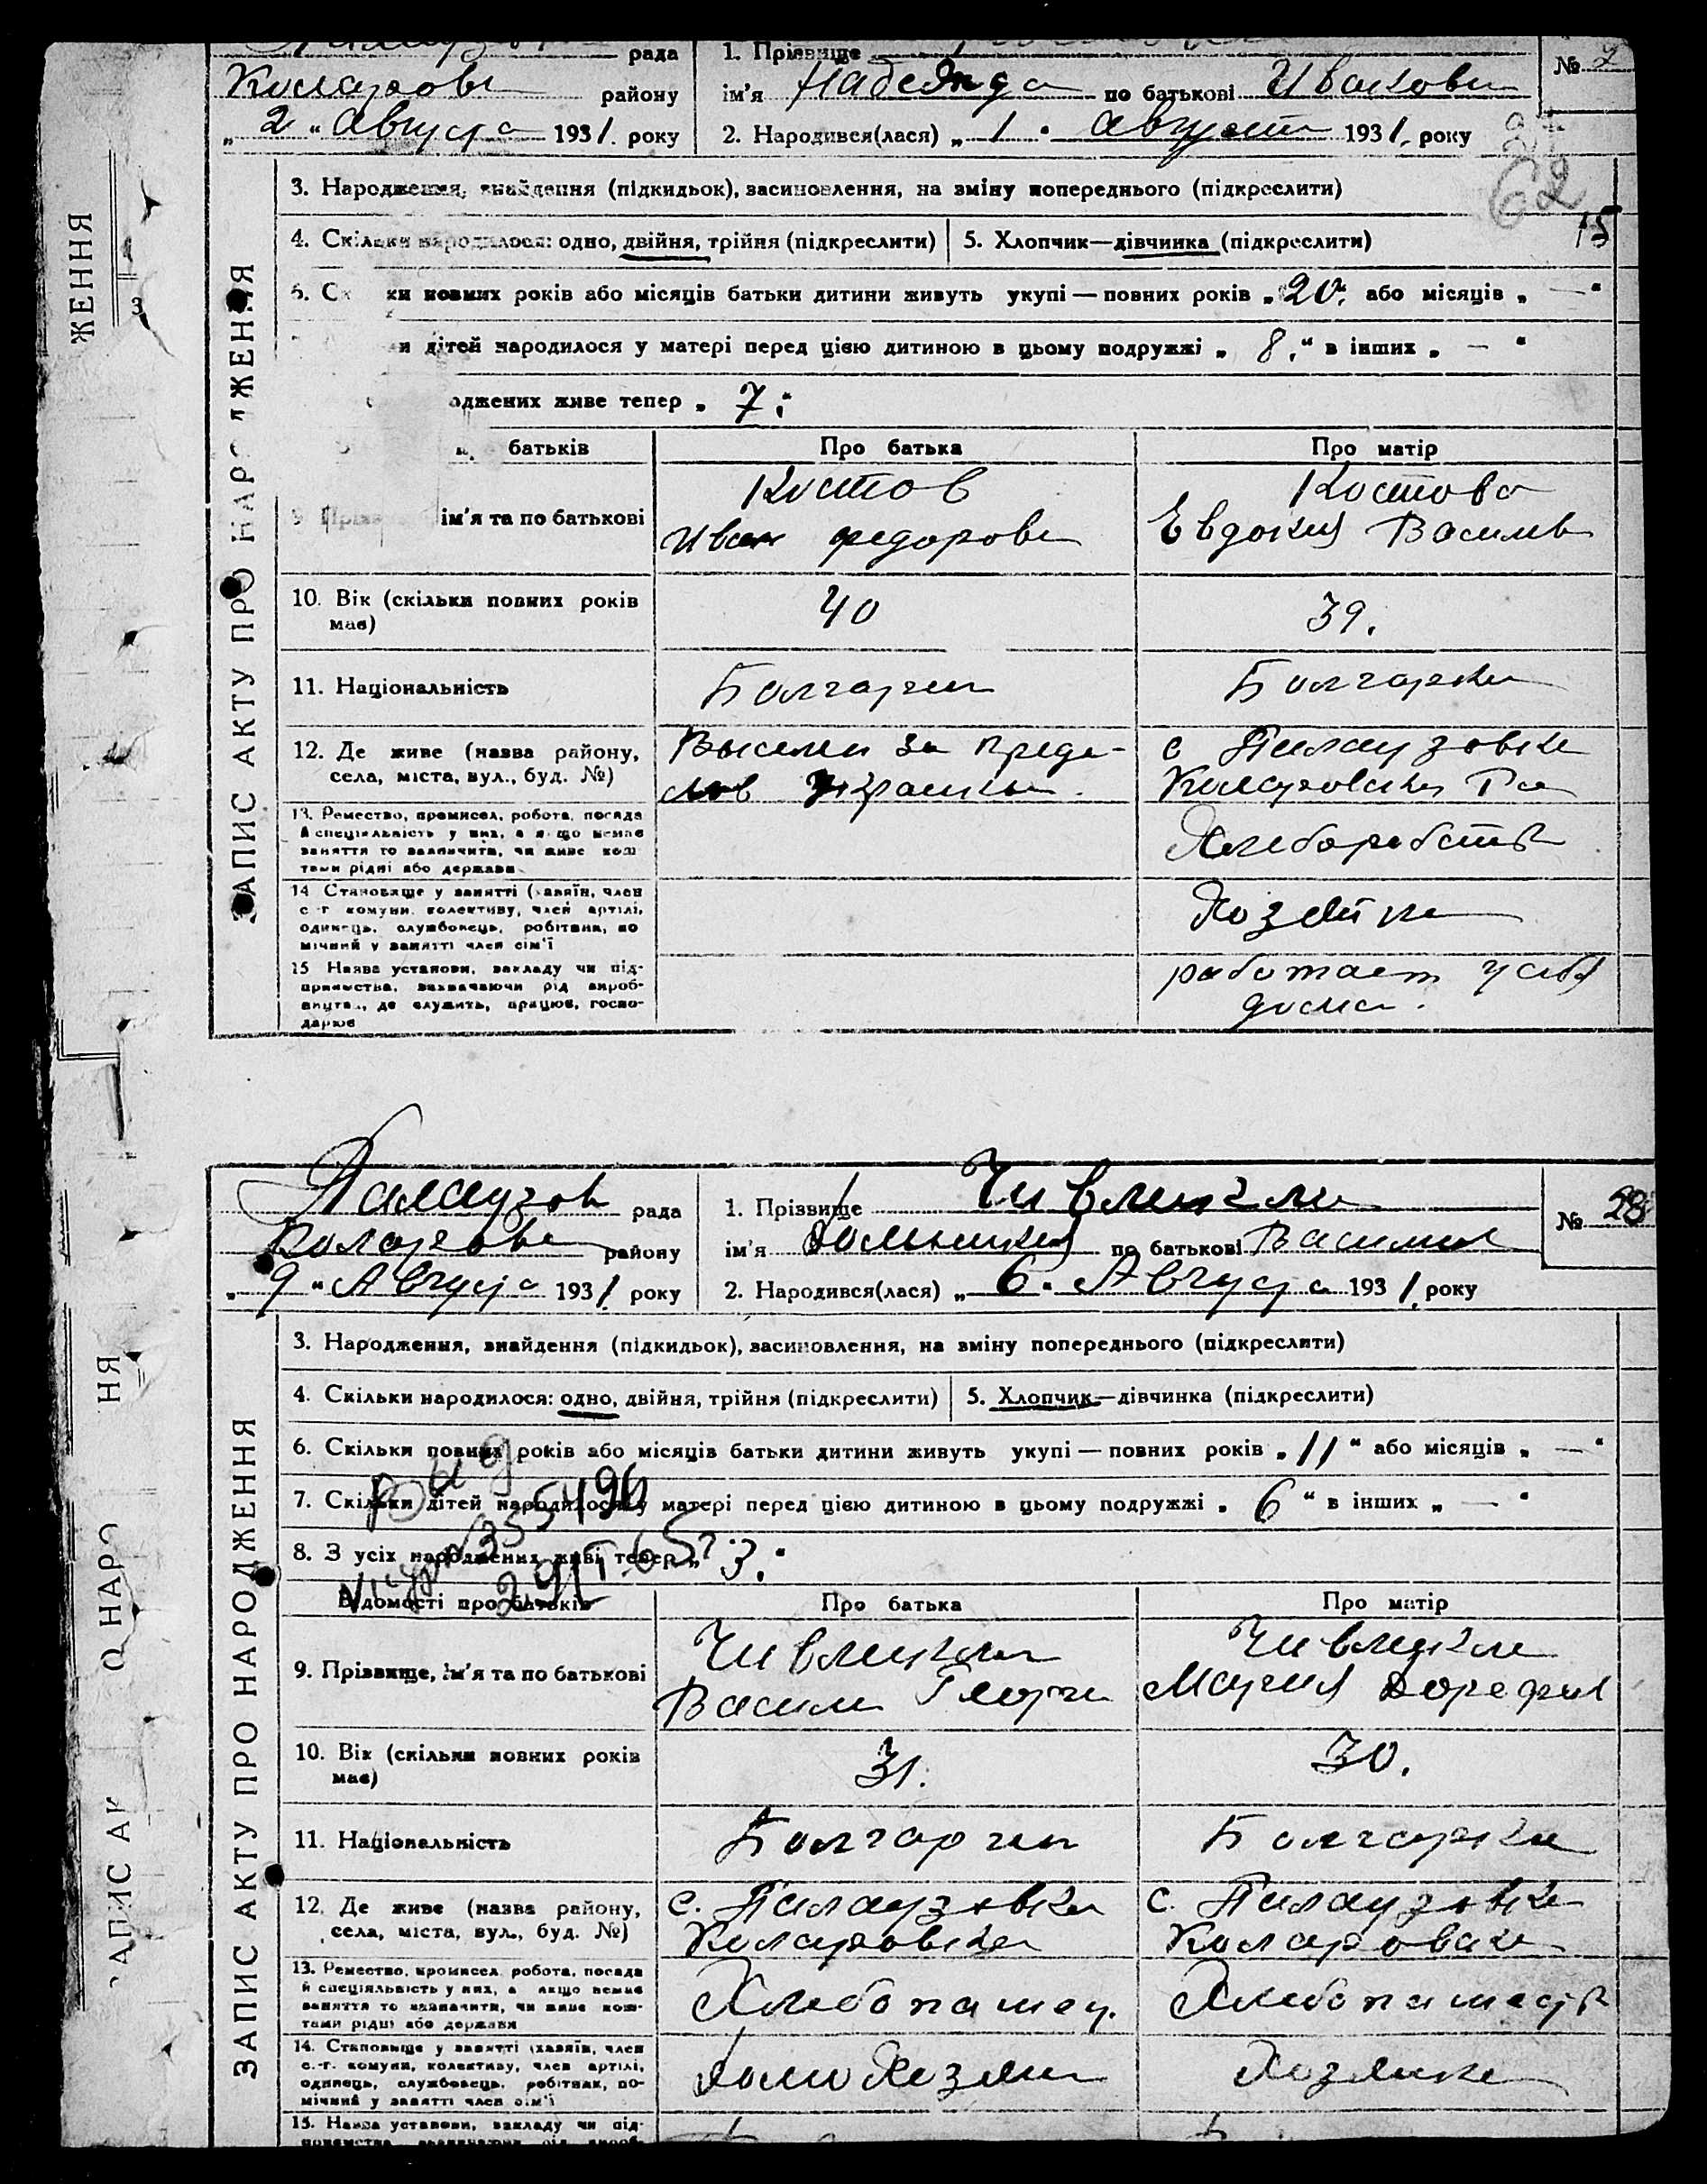 рада
1. Прізвище
№ 2
Коларов району
ім'я Надежда по батькові Иванова
„ 2 “ Августа 1931. року
2. Народився(лася) „ 1 “ Августа 1931. року
62
15
ЗАПИС АКТУ ПРО НАРОДЖЕННЯ
3. Народження, знайдення (підкидьок), засиновлення, на зміну попереднього (підкреслити)
4. Скільки народилося: одно, двійня, трійня (підкреслити)
5. Хлопчик—дівчинка (підкреслити)
6. Скільки повних років або місяців батьки дитини живуть укупі — повних років „ 20 “ або місяців „ — “
и дітей народилося у матері перед цією дитиною в цьому подружжі „ 8. “ в інших „ — “
оджених живе тепер „ 7.
батьків
Про батька
Про матір
9. Прізвище, ім'я та по батькові
Костов
Иван Федоров
Костова
Евдокия Василев
10. Вік (скільки повних років має)
40
39.
11. Національність
Болгарин
Болгарка
12. Де живе (назва району, села, міста, вул., буд. №)
Выселен за преде-
лов Украины.
с Палаузовка
Коларовский Ра
13. Ремество, промисел, робота, посада й спеціяльність у них, а якщо немає заняття то зазначити, чи живе коштами рідні або держави
Хлеборобств
14. Становище у занятті (хазяїн, член с.-г. комуни, колективу, член артілі, одинець, службовець, робітник, помічний у занятті член сім'ї
Хозяйка
15. Назва установи, закладу чи підприємства, зазначаючи рід виробництва, де служить, працює, господарює
работает у себя
дома.
Палаузов рада
1. Прізвище Чивликли
№ 28
Коларов району
ім'я по батькові Васили
„ 9 “ Августа 1931 року
2. Народився(лася) „ 6 “ Августа 1931. року
ЗАПИС АКТУ ПРО НАРОДЖЕННЯ
3. Народження, знайдення (підкидьок), засиновлення, на зміну попереднього (підкреслити)
4. Скільки народилося: одно, двійня, трійня (підкреслити)
5. Хлопчик—дівчинка (підкреслити)
6. Скільки повних років або місяців батьки дитини живуть укупі — повних років „ 11 “ або місяців „ — “
7. Скільки дітей народилося у матері перед цією дитиною в цьому подружжі „ 6 “ в інших „ — “
8. З усіх народжених живі тепер „ 3. “
Відомості про батьків
Про батька
Про матір
9. Прізвище, ім'я та по батькові
Чивликли
Васили Георги
Чивликли
Мария Дорофи
10. Вік (скільки повних років має)
31.
30.
11. Національність
Болгарин
Болгарка
12. Де живе (назва району, села, міста, вул., буд. №)
с. Палаузовка
Коларовска
с. Палаузовка
Коларовска
13. Ремество, промисел, робота, посада й спеціяльність у них, а якщо немає заняття то зазначити, чи живе коштами рідні або держави
Хлебопашец.
Хлебопашеств
14. Становище у занятті (хазяїн, член с.-г. комуни, колективу, член артілі, одинець, службовець, робітник, помічний у занятті член сім'ї
Домохозяин
Хозяйка
15. Назва установи, закладу чи під-